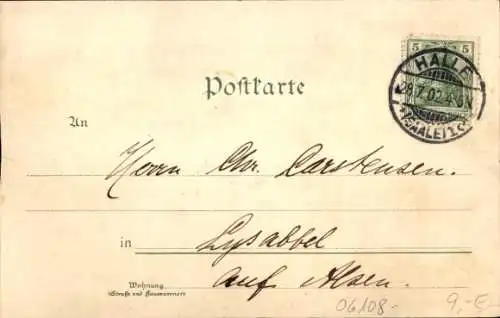 5 5
HALLE
28.7.02.4-5N
(SAALE) 1
Postkarte
An
Herrn Chr. Carstensen.
in Lysabbel
auf Alsen.
Wohnung
(Straße und Hausnummer)
06108-
9,-E